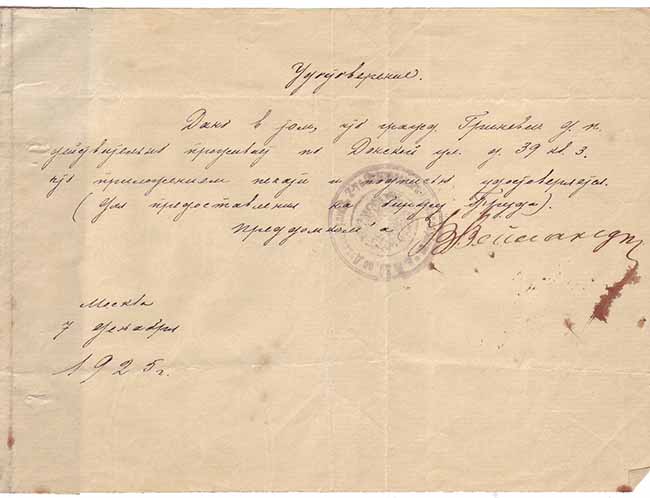 Удостоверение.
Дано в том, что гражд. Гриневич
действительно проживает по Донской ул. д. 39 кв. 3.
что приложением печати и подписью удостоверяется.
(для предоставления на биржу Труда).
Преддомком'а
Москва
7 декабря
1925 г.